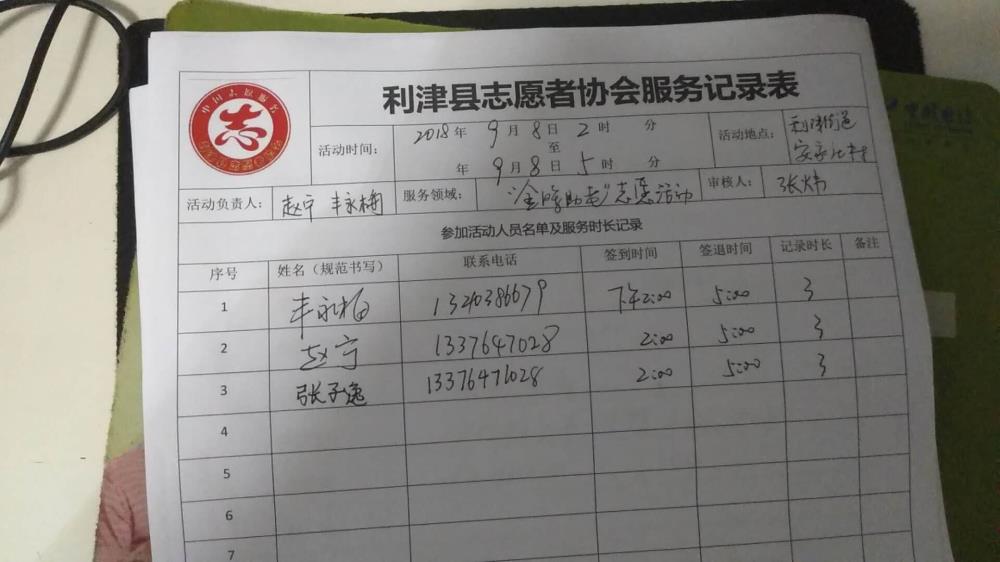 利津县志愿者协会服务记录表
中国志愿服务
志
活动时间：
2018年 9月8日2时 分
至
年 9月8日5时 分
活动地点：
利津街道
活动负责人：
赵宁 丰永梅
服务领域：
“金晖助老”志愿活动
审核人：
张炜
参加活动人员名单及服务时长记录
序号 姓名（规范书写） 联系电话 签到时间 签退时间 记录时长 备注
1 丰永梅 下午2:00 5:00 3
2 赵宁 1337647028 2:00 5:00 3
3 张子逸 13376471028 2:00 5:00 3
4
5
6
7